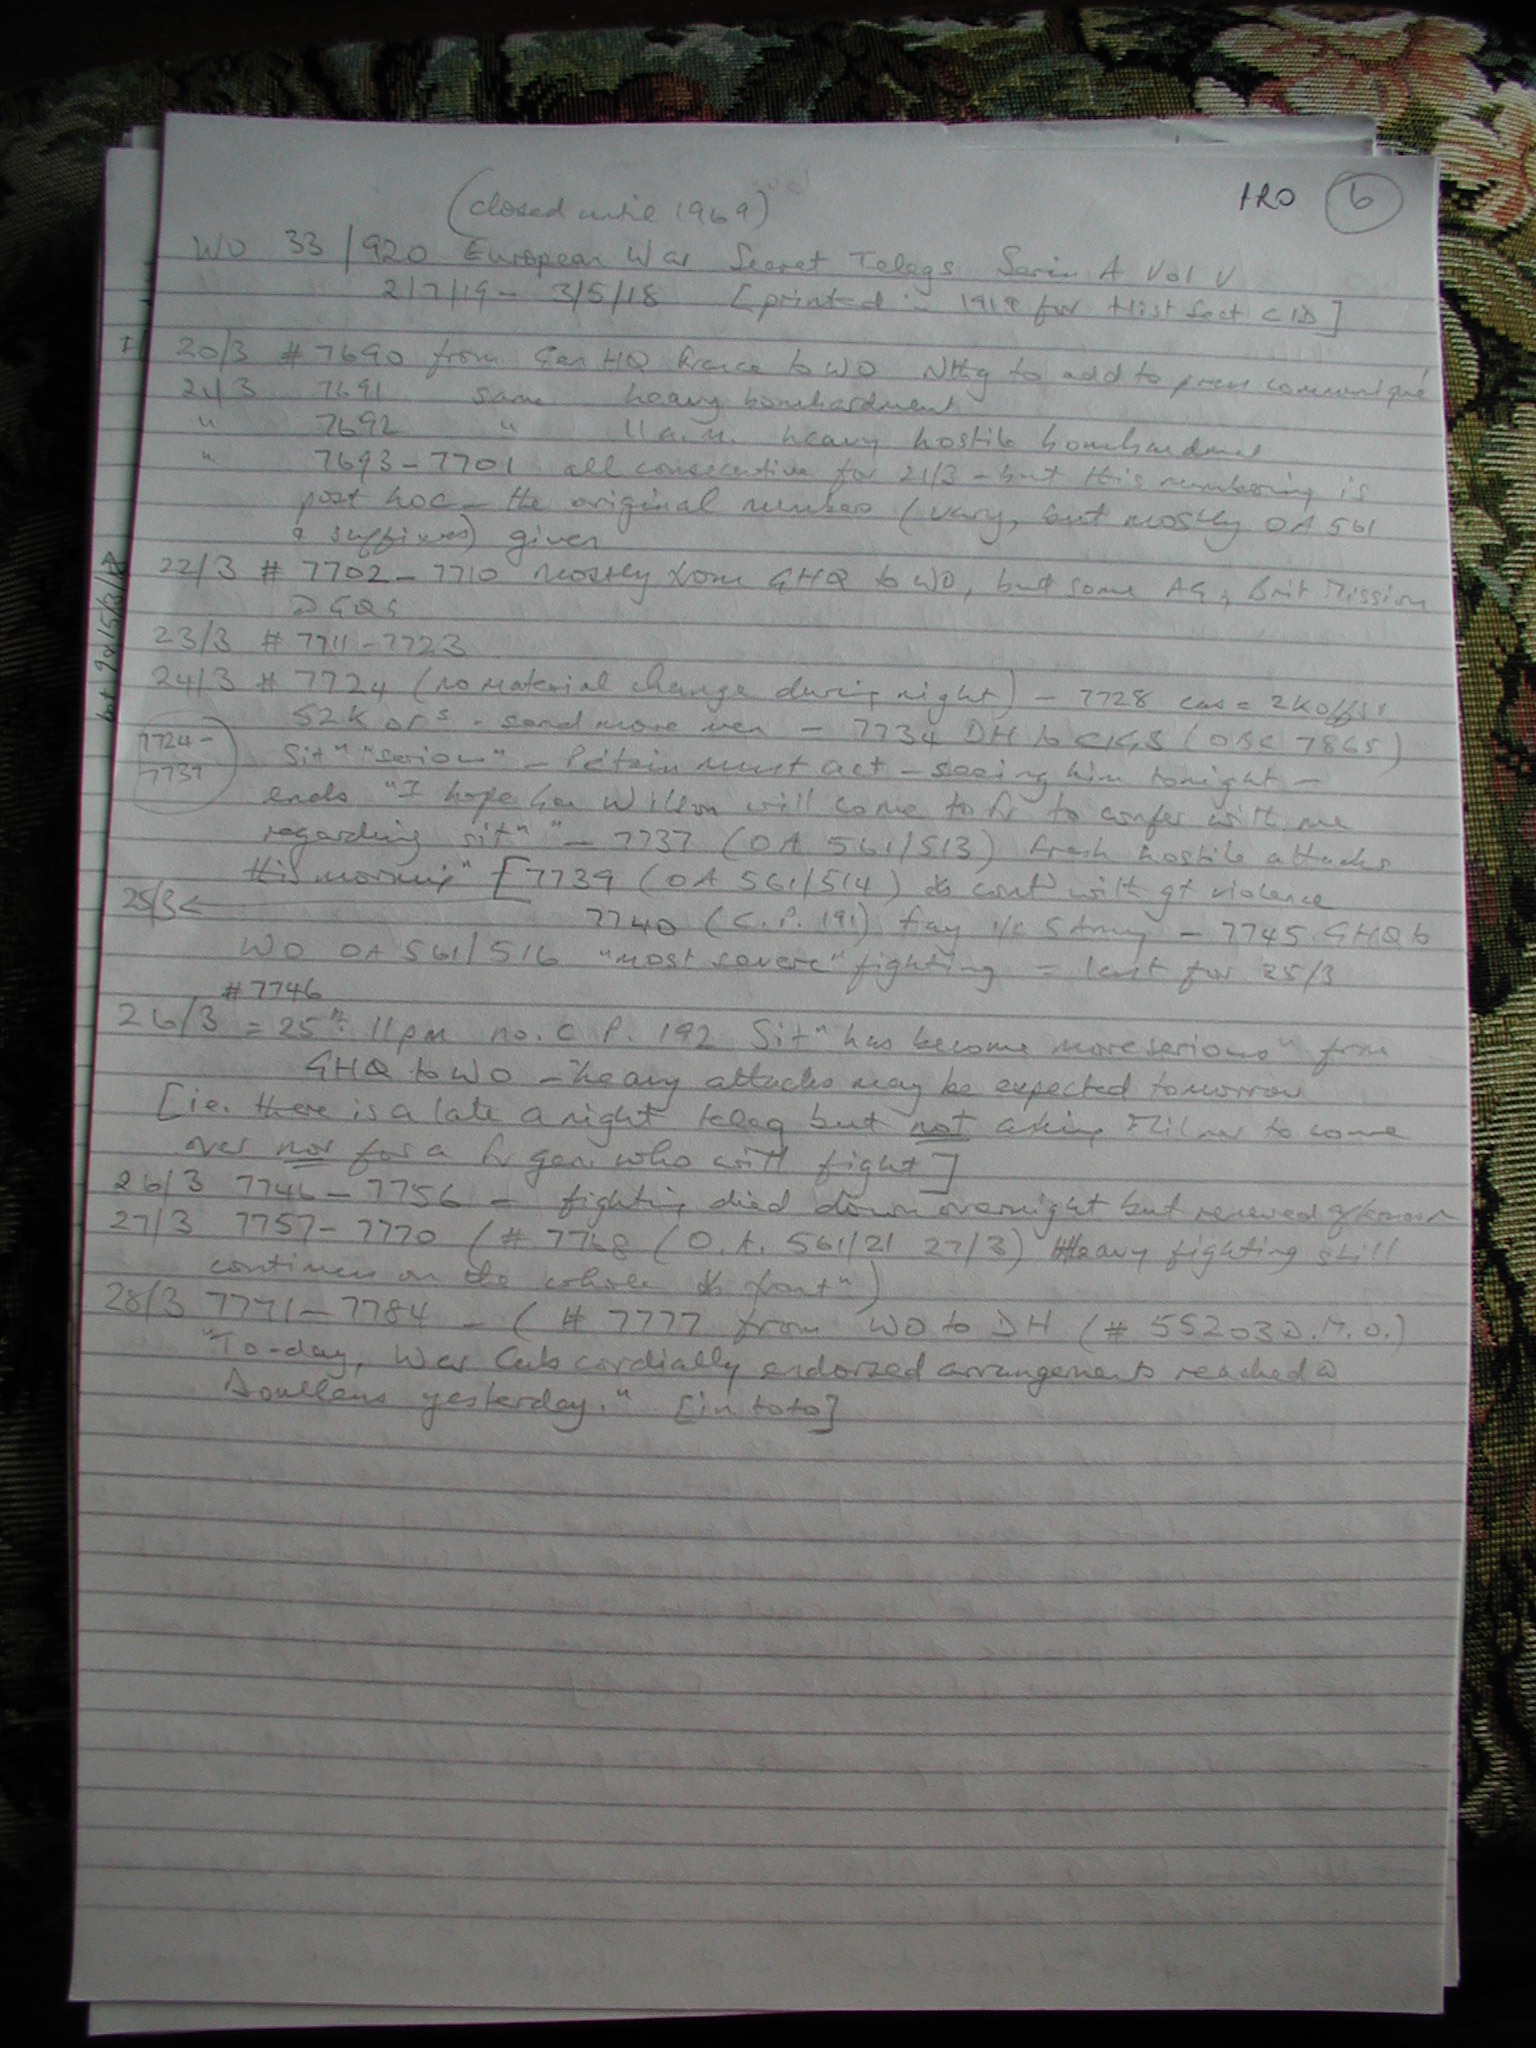 PRO 6
(closed until 1969)
WO 33/920 European War Secret Telegs Series A Vol V
2/7/19 - 3/5/18 [printed in 1919 for Hist Sect CID]
20/3 # 7690 from Gen HQ France to WO Nthg to add to press communiqué
21/3 7691 same heavy bombardment
" 7692 " 11 a.m. heavy hostile bombardment
" 7693-7701 all consecutive for 21/3 - but this numbering is
post hoc - the original numbers (vary, but mostly OA 561
& suffixes) given
22/3 # 7702-7710 mostly from GHQ to WO, but some AG, Brit Mission
DGQS
23/3 # 7711-7723
24/3 # 7724 (no material change during night) - 7728 cas = 2K offs,
52K ors - send more men - 7734 DH to CIGS (OBC 7865)
7724-
7737
Sitn "serious" - Pétain must act - seeing him tonight -
ends "I hope Gen Wilson will come to Fr to confer with me
regarding sitn" - 7737 (OA 561/513) fresh hostile attacks
this morning" [7739 (OA 561/514) contd with gt violence
25/3 ← 7740 (C.P. 191) Fay i/c 5 Army - 7745 GHQ to
WO OA 561/516 "most severe" fighting = last for 25/3
# 7746
26/3 = 25th 11pm no. C P. 192 Sitn "has become more serious" from
GHQ to WO - heavy attacks may be expected tomorrow
[ie. there is a late @ night teleg but not asking Milner to come
over nor for a Fr gen who will fight]
26/3 7746-7756 - fighting died down overnight but renewed
27/3 7757-7770 (# 7768 (O.A. 561/21 27/3) Heavy fighting still
continues on the whole front")
28/3 7771-7784 - (# 7777 from WO to DH (# 55203 D.M.O.)
"To-day, War Cab cordially endorzed arrangements reached @
Doullens yesterday." [in toto]